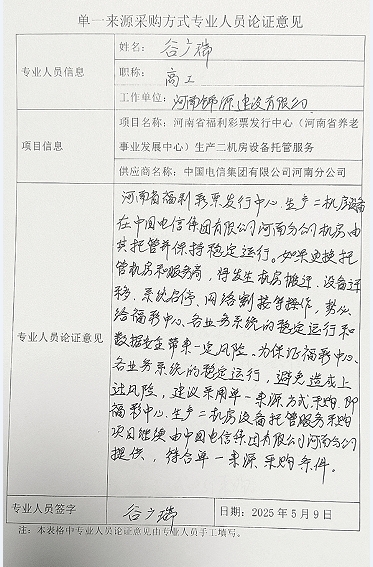 单一来源采购方式专业人员论证意见
专业人员信息
姓名：谷广瑞
职称：高工
工作单位：河南锦源建设有限公司
项目信息
项目名称：河南省福利彩票发行中心（河南省养老
事业发展中心）生产二机房设备托管服务
供应商名称：中国电信集团有限公司河南分公司
专业人员论证意见
河南省福利彩票发行中心生产二机房设备
在中国电信集团有限公司河南分公司机房由
其托管并保持稳定运行。如果更换托
管机房和服务商，将发生机房搬迁、设备迁
移、系统启停、网络割接等操作，势必
给福彩中心各业务系统的稳定运行和
数据安全带来一定风险。为保证福彩中心
各业务系统的稳定运行，避免造成上
述风险，建议采用单一来源方式采购，即
福彩中心生产二机房设备托管服务采购
项目继续由中国电信集团有限公司河南分公司
提供，符合单一来源采购条件。
专业人员签字
谷广瑞
日期：2025年5月9日
注：本表格中专业人员论证意见由专业人员手工填写。